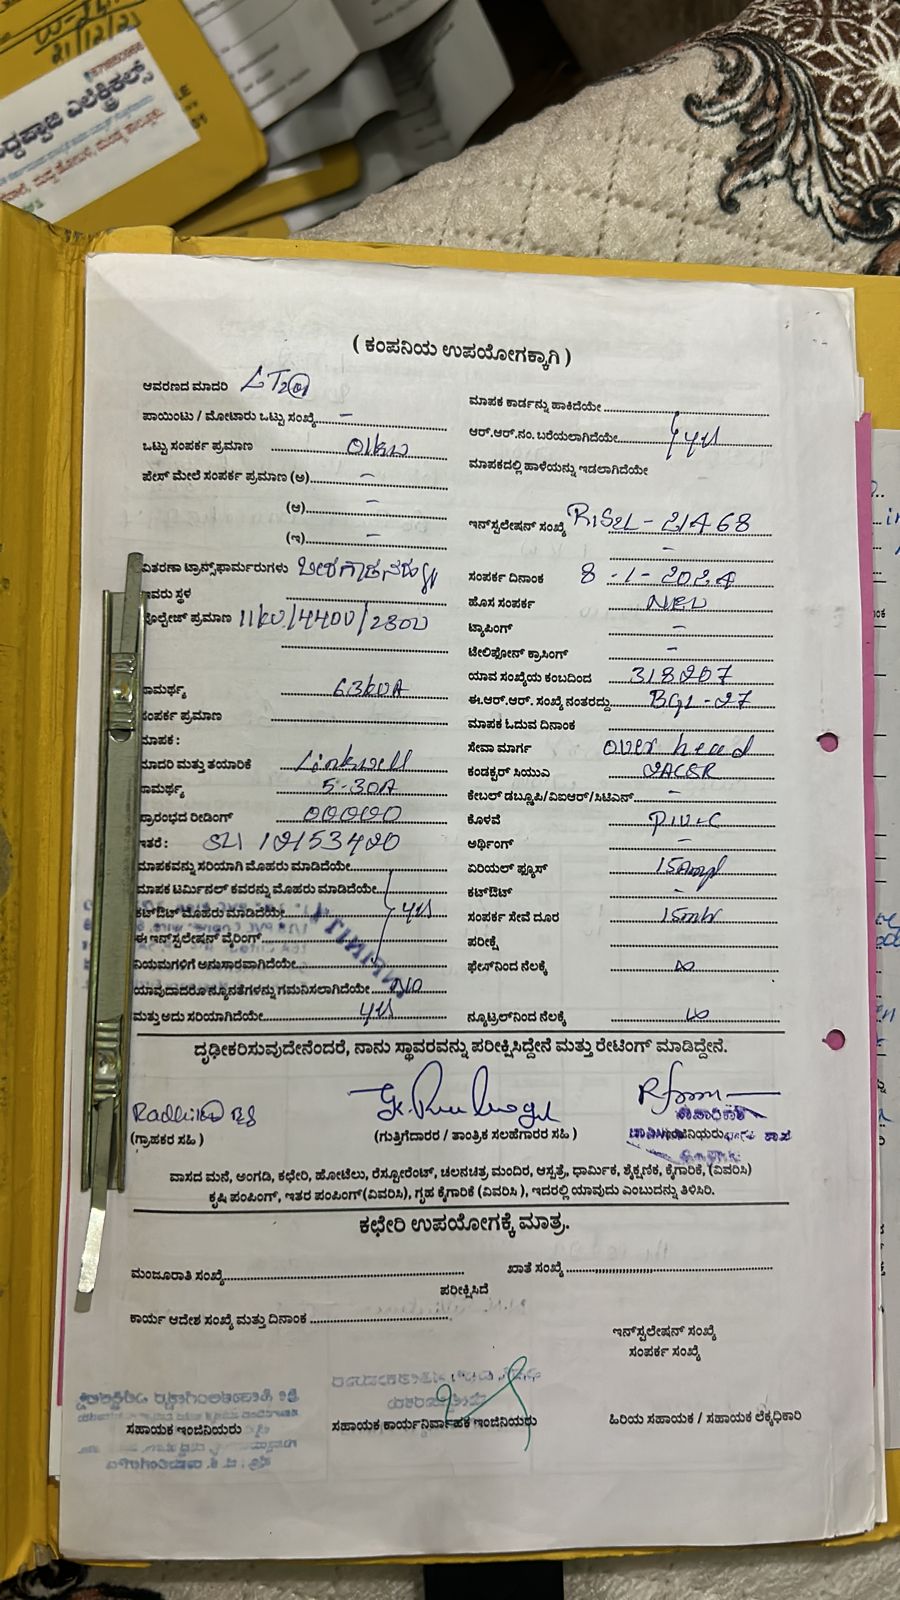 21/12/2
ಎಲೆಕ್ಟ್ರಿಕಲ್ಸ್
( ಕಂಪನಿಯ ಉಪಯೋಗಕ್ಕಾಗಿ )
ಆವರಣದ ಮಾದರಿ LT2
ಮಾಪಕ ಕಾರ್ಡನ್ನು ಹಾಕಿದೆಯೇ
ಪಾಯಿಂಟು / ಮೋಟಾರು ಒಟ್ಟು ಸಂಖ್ಯೆ -
ಆರ್.ಆರ್.ನಂ. ಬರೆಯಲಾಗಿದೆಯೇ yes
ಒಟ್ಟು ಸಂಪರ್ಕ ಪ್ರಮಾಣ 01kw
ಮಾಪಕದಲ್ಲಿ ಹಾಳೆಯನ್ನು ಇಡಲಾಗಿದೆಯೇ
ಫೇಸ್ ಮೇಲೆ ಸಂಪರ್ಕ ಪ್ರಮಾಣ (ಅ) -
(ಆ) -
ಇನ್‌ಸ್ಟಲೇಷನ್ ಸಂಖ್ಯೆ RISL - 21468
(ಇ) -
-
ವಿತರಣಾ ಟ್ರಾನ್ಸ್‌ಫಾರ್ಮರುಗಳು
ಸಂಪರ್ಕ ದಿನಾಂಕ 8-1-2024
ಇವರು ಸ್ಥಳ
ಹೊಸ ಸಂಪರ್ಕ NEW
ವೋಲ್ಟೇಜ್ ಪ್ರಮಾಣ 11kv/440V/230V
ಟ್ಯಾಪಿಂಗ್ -
ಟೇಲಿಫೋನ್ ಕ್ರಾಸಿಂಗ್ -
ಯಾವ ಸಂಖ್ಯೆಯ ಕಂಬದಿಂದ 318207
ಸಾಮರ್ಥ್ಯ 63kVA
ಈ.ಆರ್.ಆರ್. ಸಂಖ್ಯೆ ನಂತರದ್ದು BGL-27
ಸಂಪರ್ಕ ಪ್ರಮಾಣ
ಮಾಪಕ ಓದುವ ದಿನಾಂಕ
ಮಾಪಕ :
ಸೇವಾ ಮಾರ್ಗ over head
ಮಾದರಿ ಮತ್ತು ತಯಾರಿಕೆ Linkwell
ಕಂಡಕ್ಟರ್ ಸಿಯುಎ ACSR
ಸಾಮರ್ಥ್ಯ 5-30A
ಕೇಬಲ್ ಡಬ್ಲೂಪಿ/ವಿಐಆರ್/ಸಿಟಿಎಸ್ -
ಪ್ರಾರಂಭದ ರೀಡಿಂಗ್ 00000
ಕೊಳವೆ P.V.C
ಇತರೆ : SL 12153420
ಅರ್ಥಿಂಗ್ -
ಮಾಪಕವನ್ನು ಸರಿಯಾಗಿ ಮೊಹರು ಮಾಡಿದೆಯೇ
ಏರಿಯಲ್ ಫ್ಯೂಸ್ 15Amp
ಮಾಪಕ ಟರ್ಮಿನಲ್ ಕವರನ್ನು ಮೊಹರು ಮಾಡಿದೆಯೇ
ಕಟ್‌ಔಟ್ -
ಕಟ್‌ಔಟ್ ಮೊಹರು ಮಾಡಿದೆಯೇ yes
ಸಂಪರ್ಕ ಸೇವೆ ದೂರ 15mtr
ಈ ಇನ್‌ಸ್ಟಲೇಷನ್ ವೈರಿಂಗ್
ಪರೀಕ್ಷೆ
ನಿಯಮಗಳಿಗೆ ಅನುಸಾರವಾಗಿದೆಯೇ
ಫೇಸ್‌ನಿಂದ ನೆಲಕ್ಕೆ ∞
ಯಾವುದಾದರೂ ನ್ಯೂನತೆಗಳನ್ನು ಗಮನಿಸಲಾಗಿದೆಯೇ NO
ಮತ್ತು ಅದು ಸರಿಯಾಗಿದೆಯೇ yes
ನ್ಯೂಟ್ರಲ್‌ನಿಂದ ನೆಲಕ್ಕೆ ∞
ದೃಢೀಕರಿಸುವುದೇನೆಂದರೆ, ನಾನು ಸ್ಥಾವರವನ್ನು ಪರೀಕ್ಷಿಸಿದ್ದೇನೆ ಮತ್ತು ರೇಟಿಂಗ್ ಮಾಡಿದ್ದೇನೆ.
(ಗ್ರಾಹಕರ ಸಹಿ )
(ಗುತ್ತಿಗೆದಾರರ / ತಾಂತ್ರಿಕ ಸಲಹೆಗಾರರ ಸಹಿ )
ವಾಸದ ಮನೆ, ಅಂಗಡಿ, ಕಛೇರಿ, ಹೋಟೆಲು, ರೆಸ್ಟೋರೆಂಟ್, ಚಲನಚಿತ್ರ ಮಂದಿರ, ಆಸ್ಪತ್ರೆ, ಧಾರ್ಮಿಕ, ಶೈಕ್ಷಣಿಕ, ಕೈಗಾರಿಕೆ, (ವಿವರಿಸಿ)
ಕೃಷಿ ಪಂಪಿಂಗ್, ಇತರ ಪಂಪಿಂಗ್ (ವಿವರಿಸಿ), ಗೃಹ ಕೈಗಾರಿಕೆ (ವಿವರಿಸಿ ), ಇದರಲ್ಲಿ ಯಾವುದು ಎಂಬುದನ್ನು ತಿಳಿಸಿರಿ.
ಕಛೇರಿ ಉಪಯೋಗಕ್ಕೆ ಮಾತ್ರ.
ಮಂಜೂರಾತಿ ಸಂಖ್ಯೆ
ಖಾತೆ ಸಂಖ್ಯೆ
ಪರೀಕ್ಷಿಸಿದೆ
ಕಾರ್ಯ ಆದೇಶ ಸಂಖ್ಯೆ ಮತ್ತು ದಿನಾಂಕ
ಇನ್‌ಸ್ಟಲೇಷನ್ ಸಂಖ್ಯೆ
ಸಂಪರ್ಕ ಸಂಖ್ಯೆ
ಸಹಾಯಕ ಇಂಜಿನಿಯರು
ಸಹಾಯಕ ಕಾರ್ಯನಿರ್ವಾಹಕ ಇಂಜಿನಿಯರು
ಹಿರಿಯ ಸಹಾಯಕ / ಸಹಾಯಕ ಲೆಕ್ಕಧಿಕಾರಿ